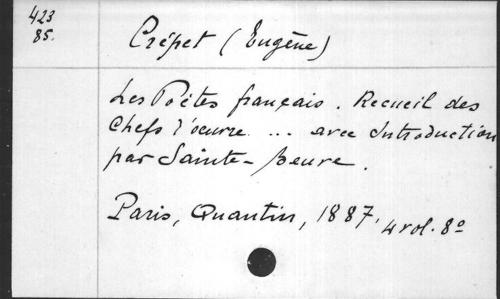 423
85.
Crépet (Eugène)
Les Poètes français. Recueil des
Chefs d'oeuvre ... avec Introduction
par Sainte-Beuve.
Paris, Quantin, 1887, 4 vol. 8º